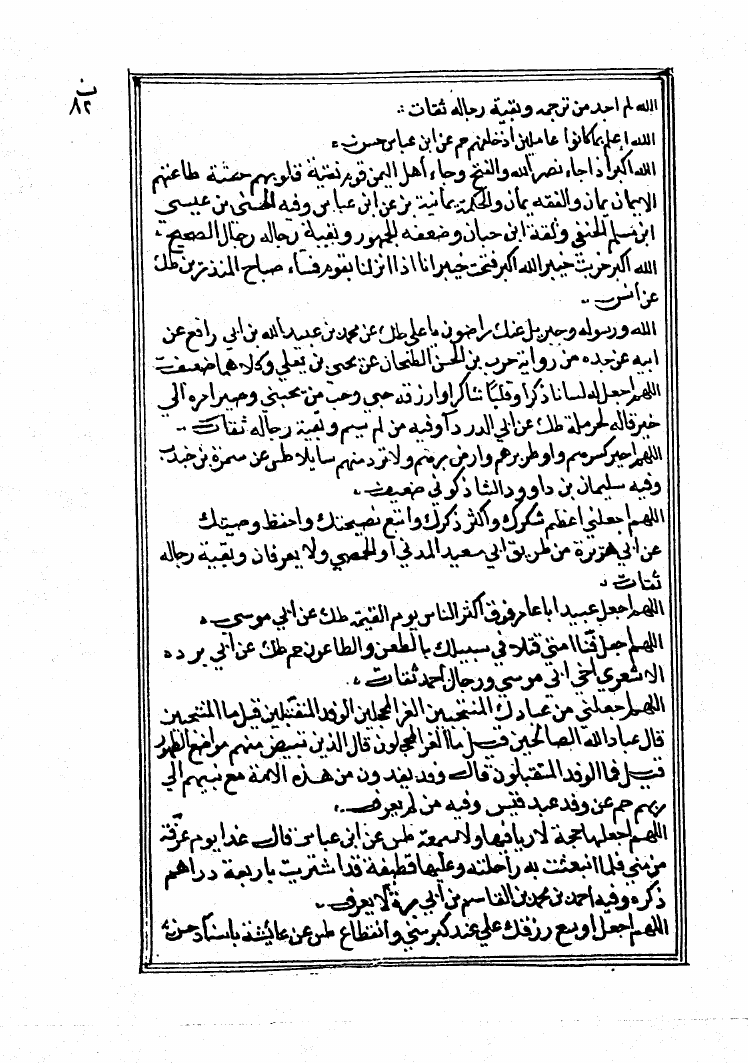 ن
٨٢
الله لم اجد من ترجمه وبقية رجاله ثقات
الله اعلم بما كانوا عاملين اذ خلقهم حم عن ابن عباس حسن
الله اكبر اذا جاء نصر الله والفتح وجاء أهل اليمن قوم نقية قلوبهم حسنة طاعتهم
الايمان يمان والفقه يمان والحكمة يمانية بز عن ابن عباس وفيه الحسين بن عيسي
ابن مسلم الحنفي وثقه ابن حبان وضعفه الجمهور وبقية رجاله رجال الصحيح
الله اكبر خربت خيبر الله اكبر فتحت خيبر انا اذا انزلنا بقوم فساء صباح المنذرين طك
عن انس
الله ورسوله وجبريل عنك راضون يا علي طك عن محمد بن عبيد الله بن ابي رافع عن
ابيه عن جده من رواية حرب بن الحسن الطحان عن يحيى بن يعلي وكلاهما ضعيف
اللهم اجعل له لسانا ذكرا وقلبا شاكرا وارزقه حبي وحب من يحبني وصير امره الي
خير قاله لحرملة طك عن ابي الدرداء وفيه من لم يسم وبقية رجاله ثقات
اللهم اجبر كسرهم واوطن برهم وارض برهم ولا ترد منهم سايلا طس عن سمرة بن جندب
وفيه سليمان بن داوود الشاذكوني ضعيف
اللهم اجعلني اعظم شكرك واكثر ذكرك واتبع نصيحتك واحفظ وصيتك
عن ابي هريرة من طريق ابي سعيد المدني او الحمصي ولا يعرفان وبقية رجاله
ثقات
اللهم اجعل عبيد ابا عامر فوق اكثر الناس يوم القيمة طك عن ابي موسي
اللهم اجعل فنا امتي قتلا في سبيلك بالطعن والطاعون حم طك عن ابي برده
الاشعري اخي ابي موسي ورجال احمد ثقات
اللهم اجعلني من عبادك المنتخبين الغر المحجلين الوفد المتقبلين قيل ما المنتخبين
قال عباد الله الصالحين قيل ما الغر المحجلون قال الذين تبيض منهم مواضع الطهور
قيل فما الوفد المتقبلون قال وفد يفدون من هذه الامة مع نبيهم الي
ربهم حم عن وفد عبد قيس وفيه من لم يعرف
اللهم اجعلها حجة لا ريا فيها ولا سمعة طس عن ابن عباس قال غدا يوم عرفة
من مني فلما انبعثت به راحلته وعليها قطيفة قد اشتريت باربعة دراهم
ذكره وفيه احمد بن محمد بن القاسم بن ابي بزة لا يعرف
اللهم اجعل اوسع رزقك علي عند كبر سني وانقطاع طس عن عايشة باسناد حسن